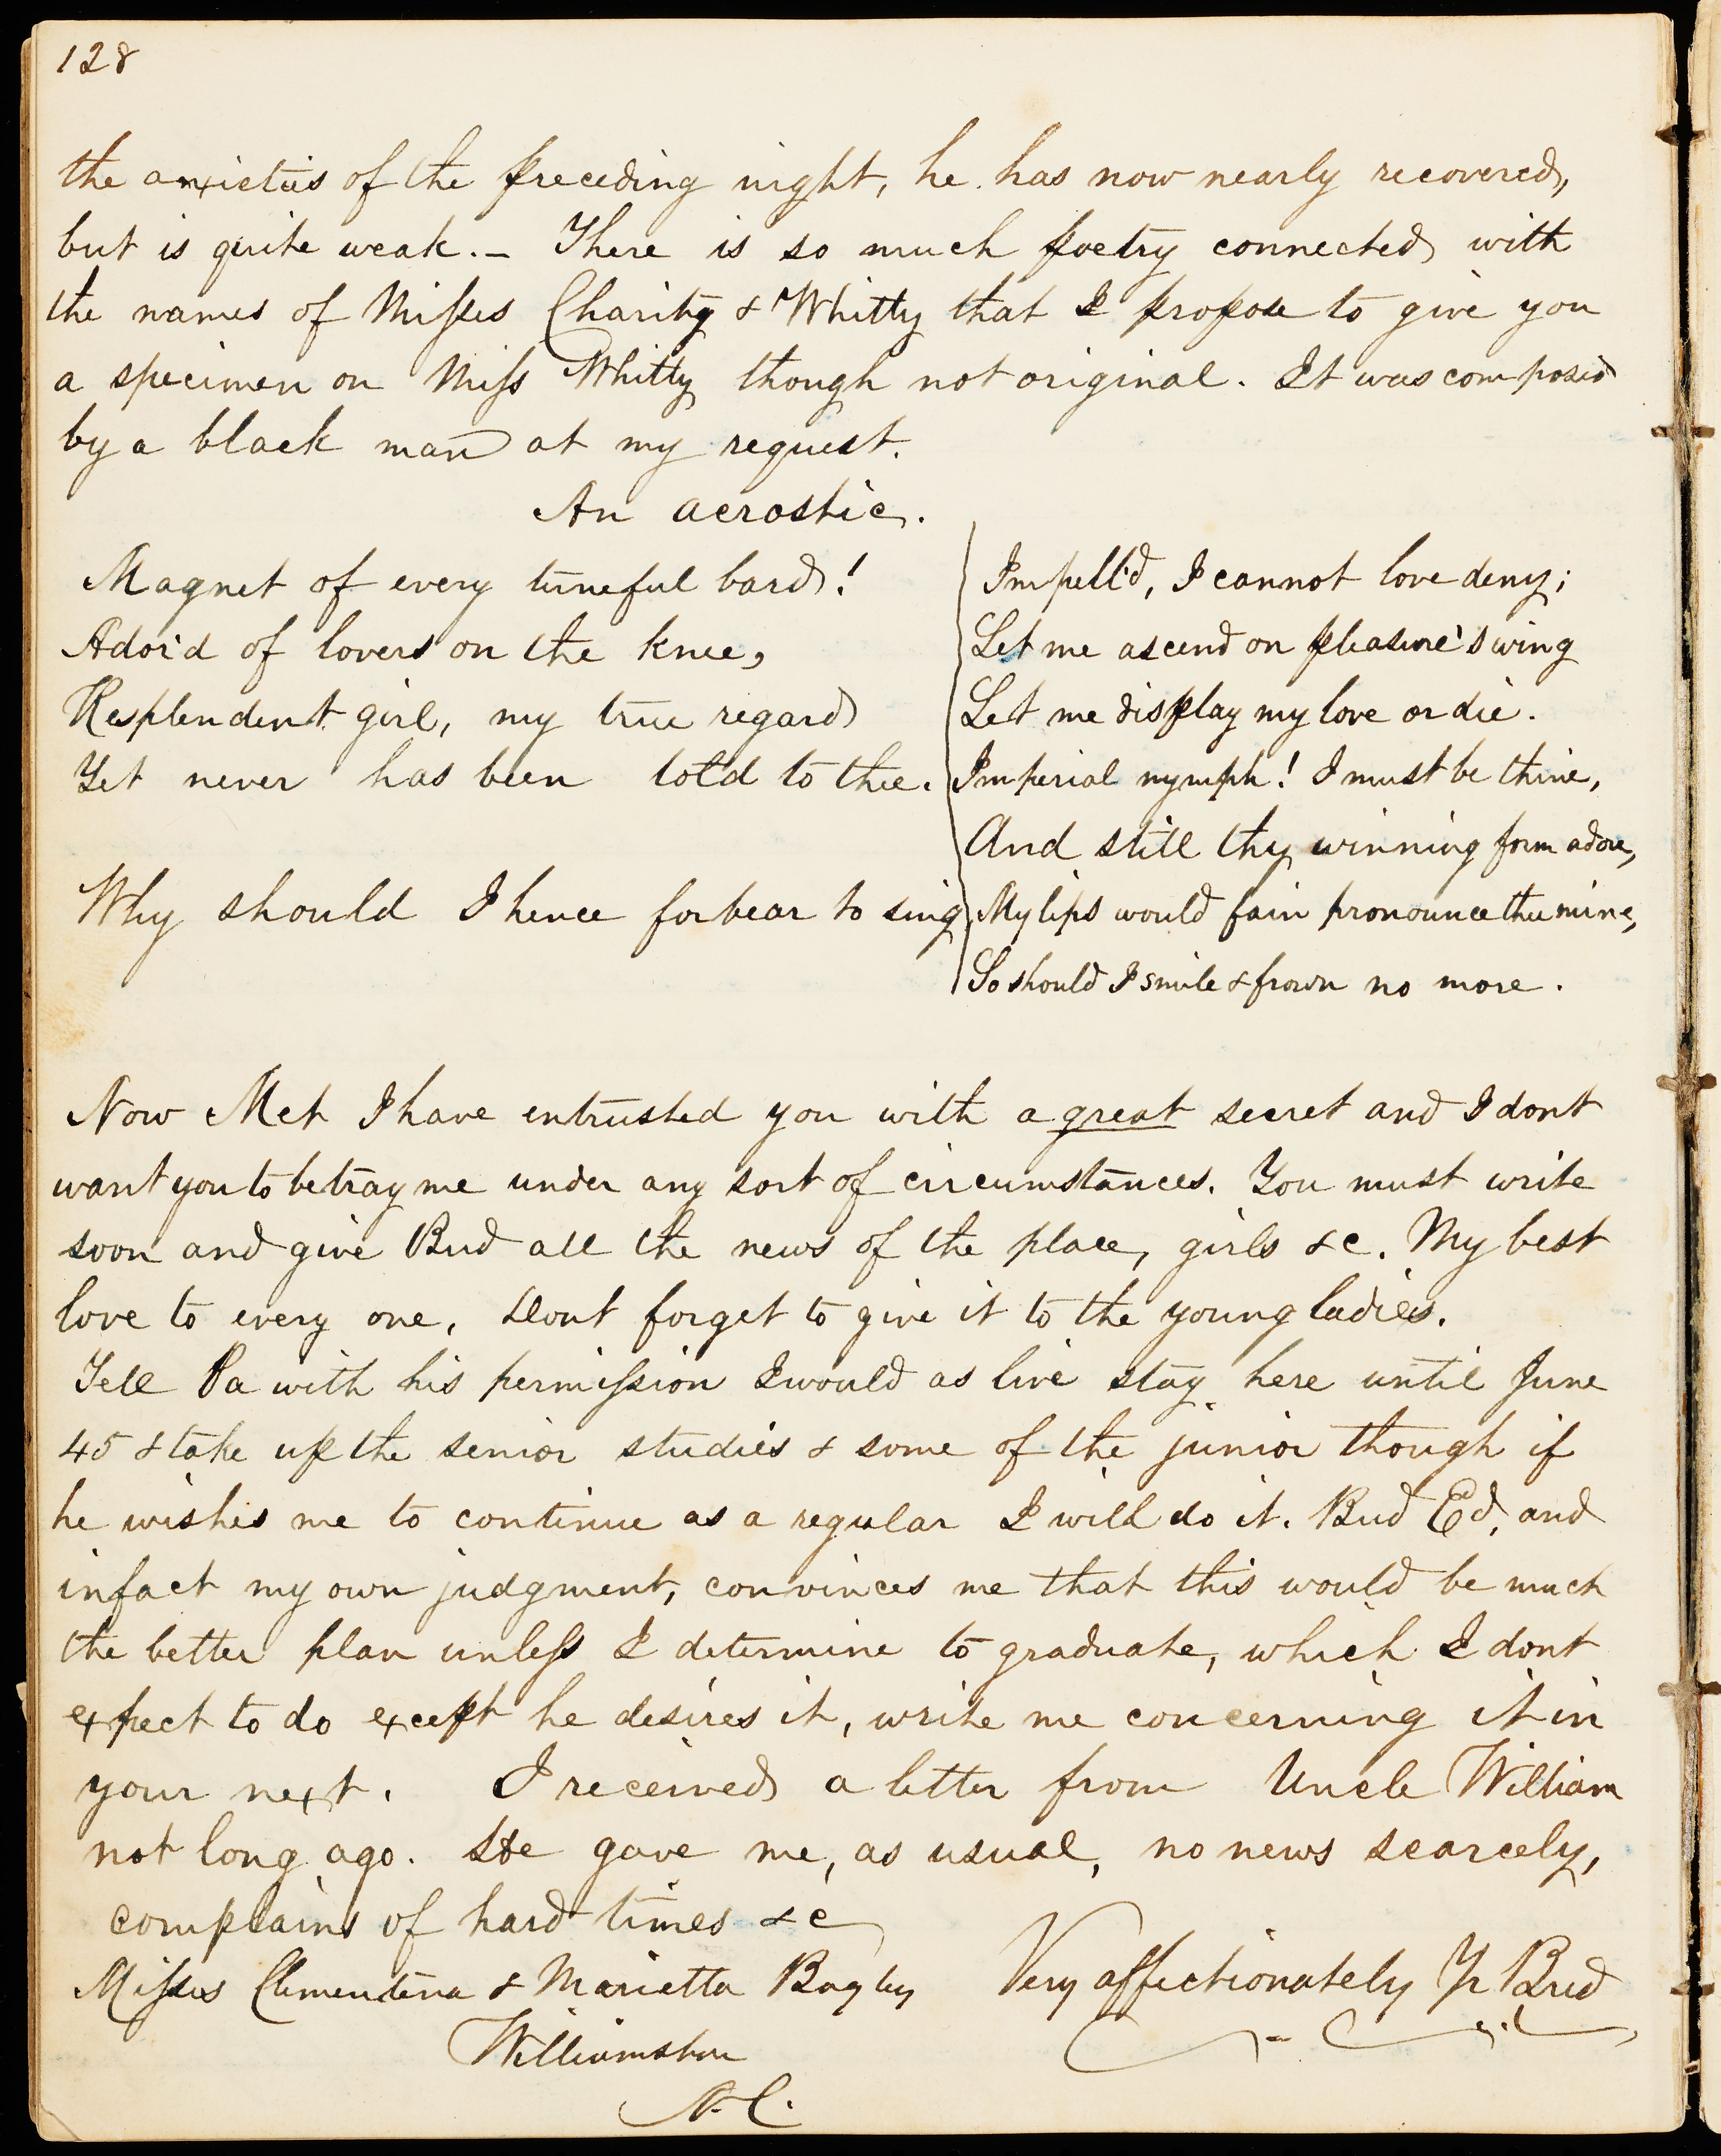 128
the anxieties of the preceding night, he has now nearly recovered,
but is quite weak. – There is so much poetry connected with
the names of Misses Charity & Whitty that I propose to give you
a specimen on Miss Whitty though not original. It was composed
by a black man at my request.
An acrostic.
Magnet of every tuneful bard!
Ador'd of lovers on the knee,
Resplendent girl, my true regard
Yet never has been told to thee.
Why should I hence forbear to sing
Impell'd, I cannot love deny;
Let me ascend on pleasure's wing
Let me display my love or die.
Imperial nymph! I must be thine,
And still thy winning form adore,
My lips would fain pronounce thee mine,
So should I smile & frown no more.
Now Met I have entrusted you with a great secret and I dont
want you to betray me under any sort of circumstances. You must write
soon and give Bud all the news of the place, girls &c. My best
love to every one, dont forget to give it to the young ladies.
Tell Pa with his permission I would as live stay here until June
45 & take up the senior studies & some of the junior though if
he wishes me to continue as a regular I will do it. Bud Ed, and
infact my own judgment, convinces me that this would be much
the better plan unless I determine to graduate, which I dont
expect to do except he desires it, write me concerning it in
your next. I received a letter from Uncle William
not long ago. He gave me, as usual, no news scarcely,
complains of hard times &c
Very affectionately Yr Bud
Misses Clementina & Marietta Bagley
Williamston
N.C.